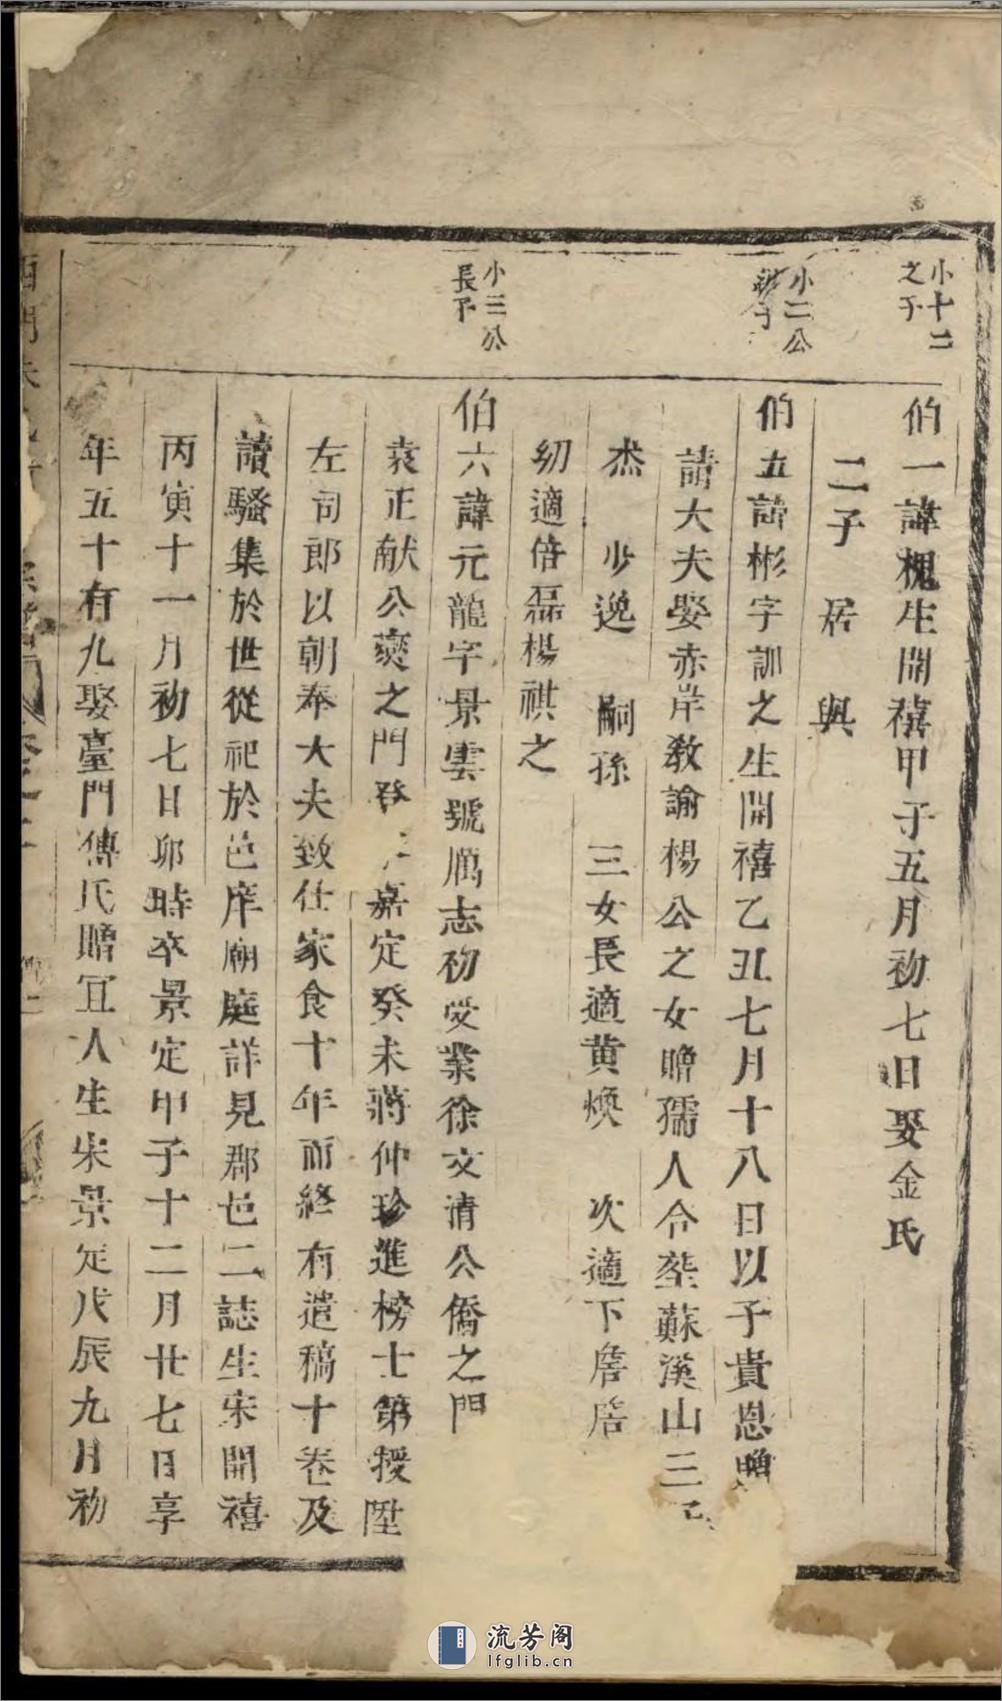 小十二
之子
伯一諱槐生開禧甲子五月初七日娶金氏
二子 居 與
小二公
子
伯五諱彬字訓之生開禧乙丑七月十八日以子貴恩贈
請大夫娶赤岸教諭楊公之女贈孺人合塟蘇溪山三
杰 少逸 嗣孫 三女長適黄焕 次適下詹詹
幼適倍磊楊祺之
小三公
長子
伯六諱元龍字景雲號厲志初受業徐文清公僑之門
袁正献公燮之門登 嘉定癸未蔣仲珍進榜士第授陞
左司郎以朝奉大夫致仕家食十年而終有遺稿十卷及
讀騷集於世從祀於邑庠廟庭詳見郡邑二誌生宋開禧
丙寅十一月初七日卯時卒景定甲子十二月廿七日享
年五十有九娶臺門傅氏贈宜人生宋景定戊辰九月初
流芳阁
lfglib.cn